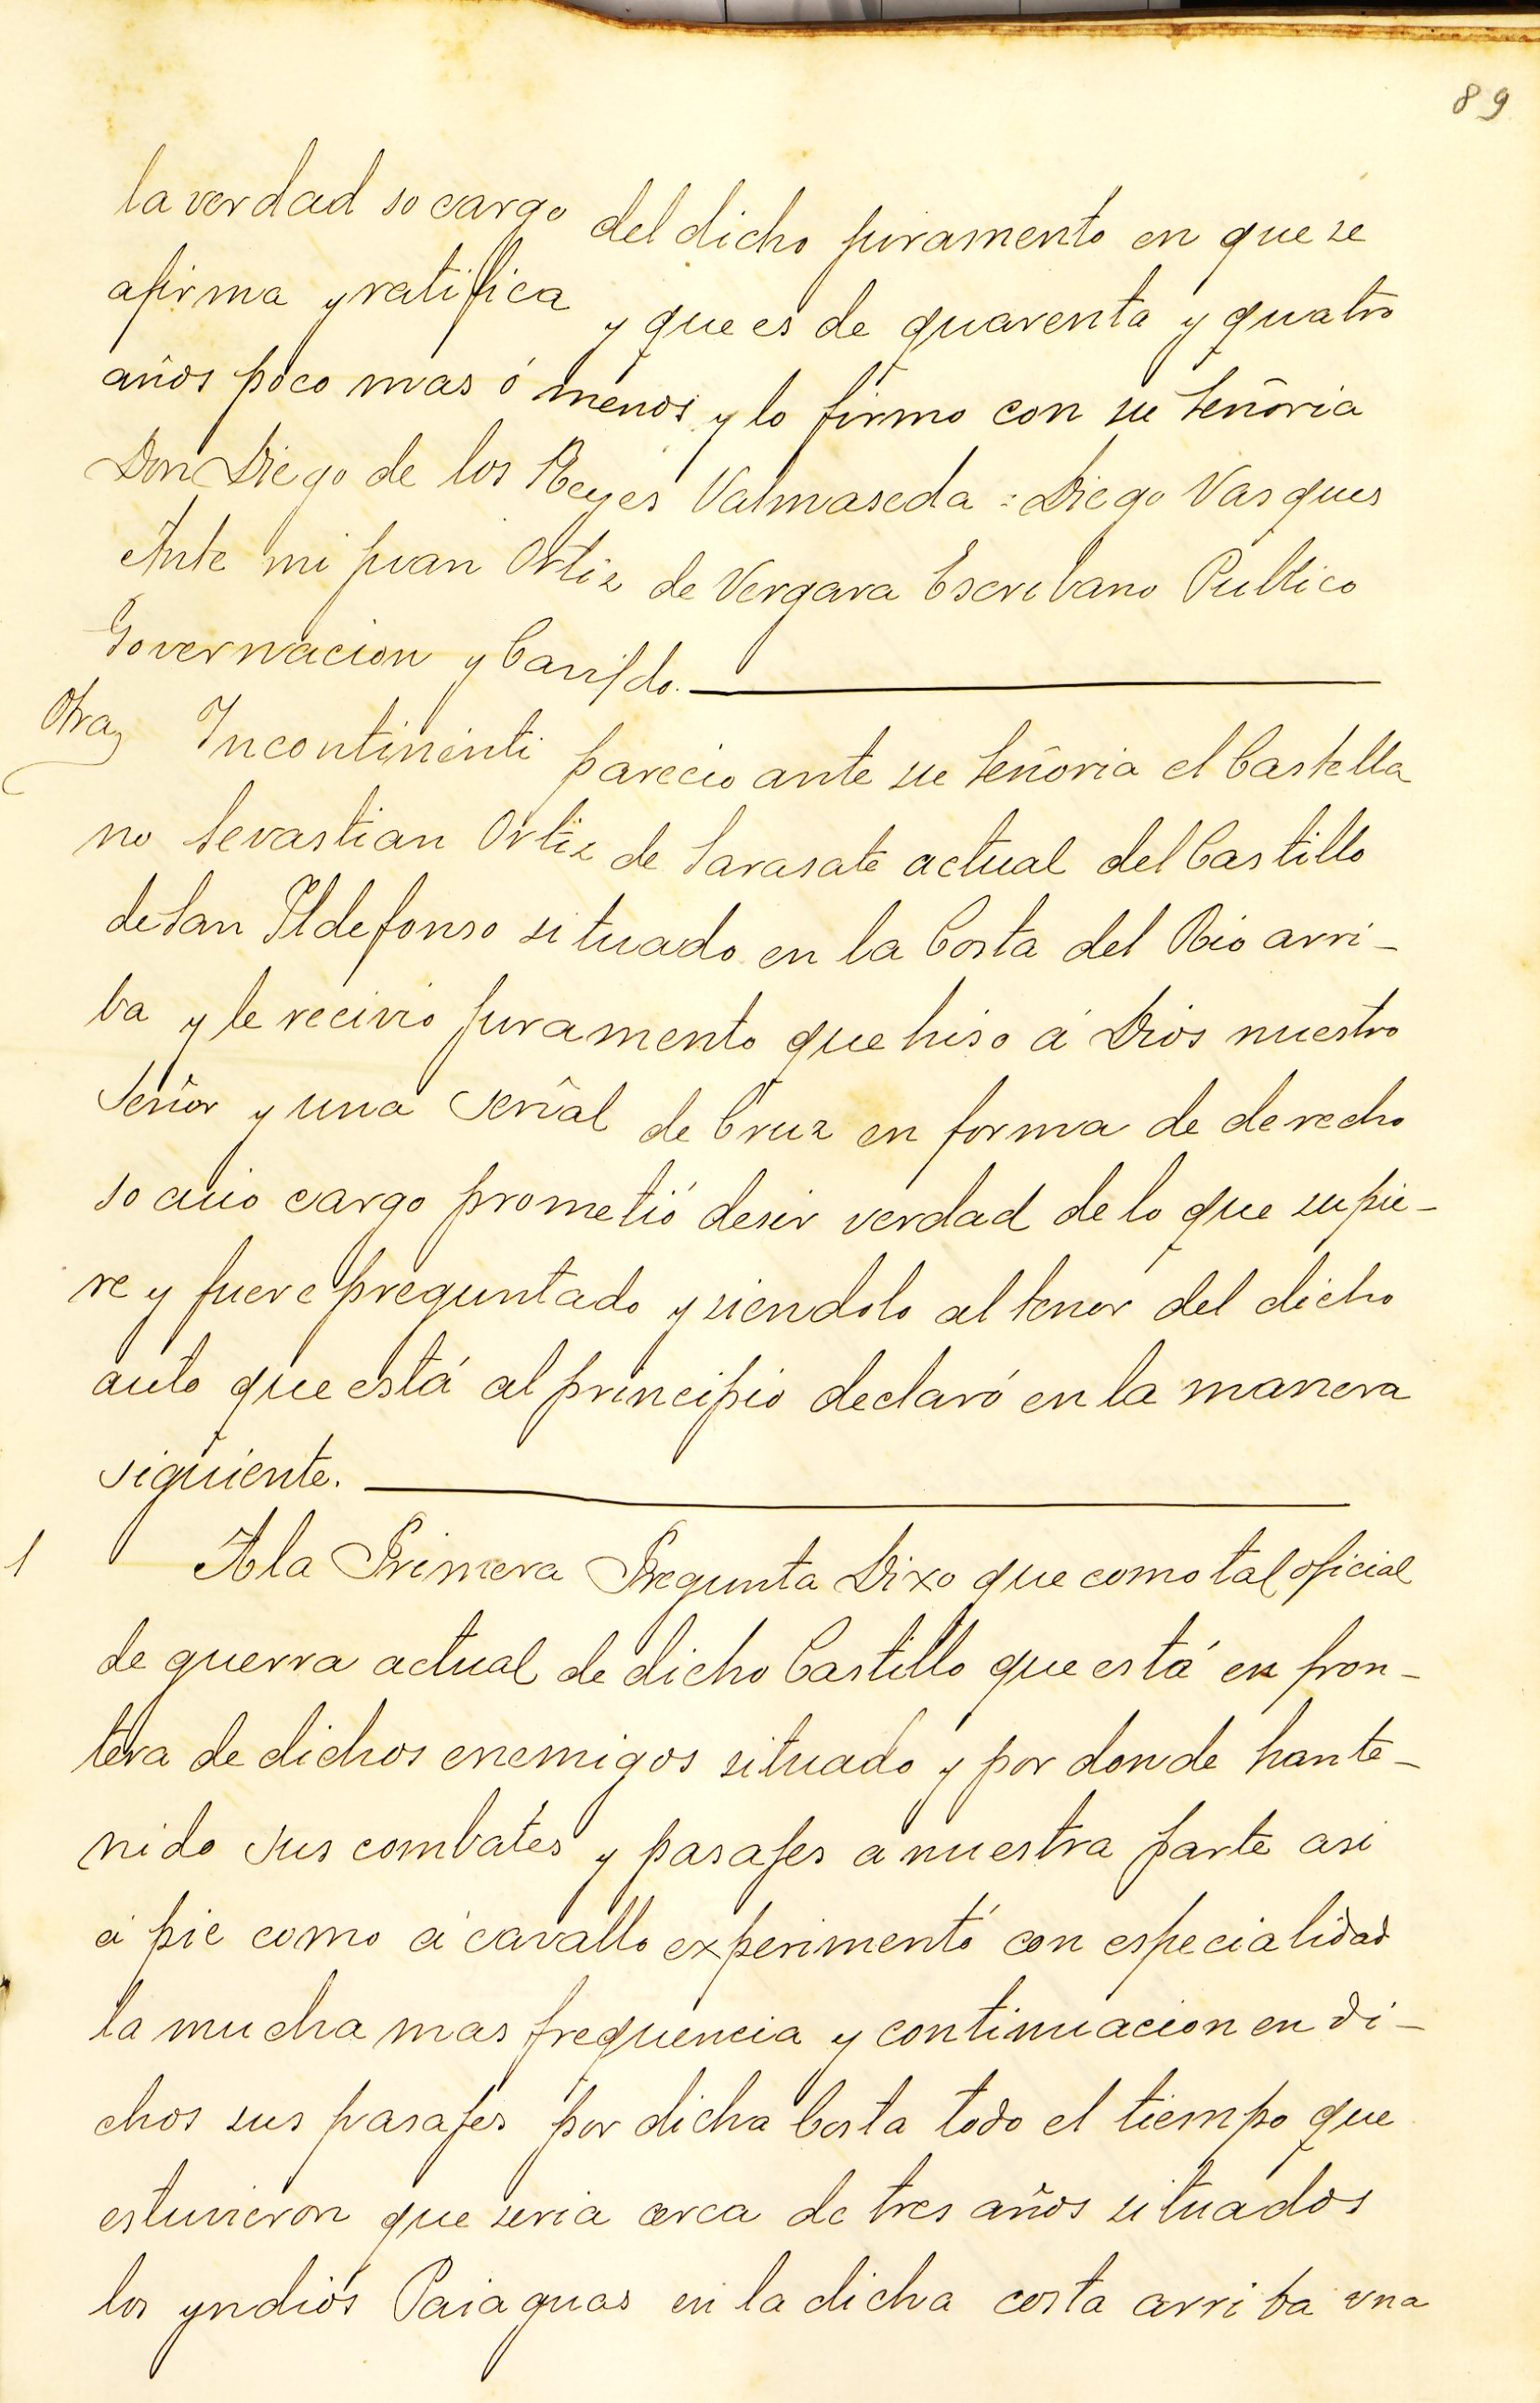 89
la verdad so cargo del dicho juramento en que se
afirma y ratifica y que es de quarenta y quatro
años poco mas ó menos y lo firmo con su Señoria
Don Diego de los Reyes Valmaseda = Diego Vasques
Ante mi Juan Ortiz de Vergara Escribano Publico
Governacion y Cavildo.
Otra Incontinenti parecio ante su Señoria el Castella
no Sevastian Ortiz de Sarasate actual del Castillo
de San Ildefonso situado en la Costa del Rio arri-
ba y le recivio juramento que hiso á Dios nuestro
Señor y una señal de Cruz en forma de derecho
so cuio cargo prometió desir verdad de lo que supie-
re y fuere preguntado y siendolo al tenor del dicho
auto que está al principio declaró en la manera
siguiente.
1 A la Primera Pregunta Dixo que como tal oficial
de guerra actual de dicho Castillo que está en fron-
tera de dichos enemigos situado y por donde han te-
nido sus combates y pasajes a nuestra parte asi
á pie como á cavallo experimentó con especialidad
la mucha mas frequencia y continuacion en di-
chos sus pasajes por dicha Costa todo el tiempo que
estuvieron que seria cerca de tres años situados
los yndios Paiaguas en la dicha costa arriba una